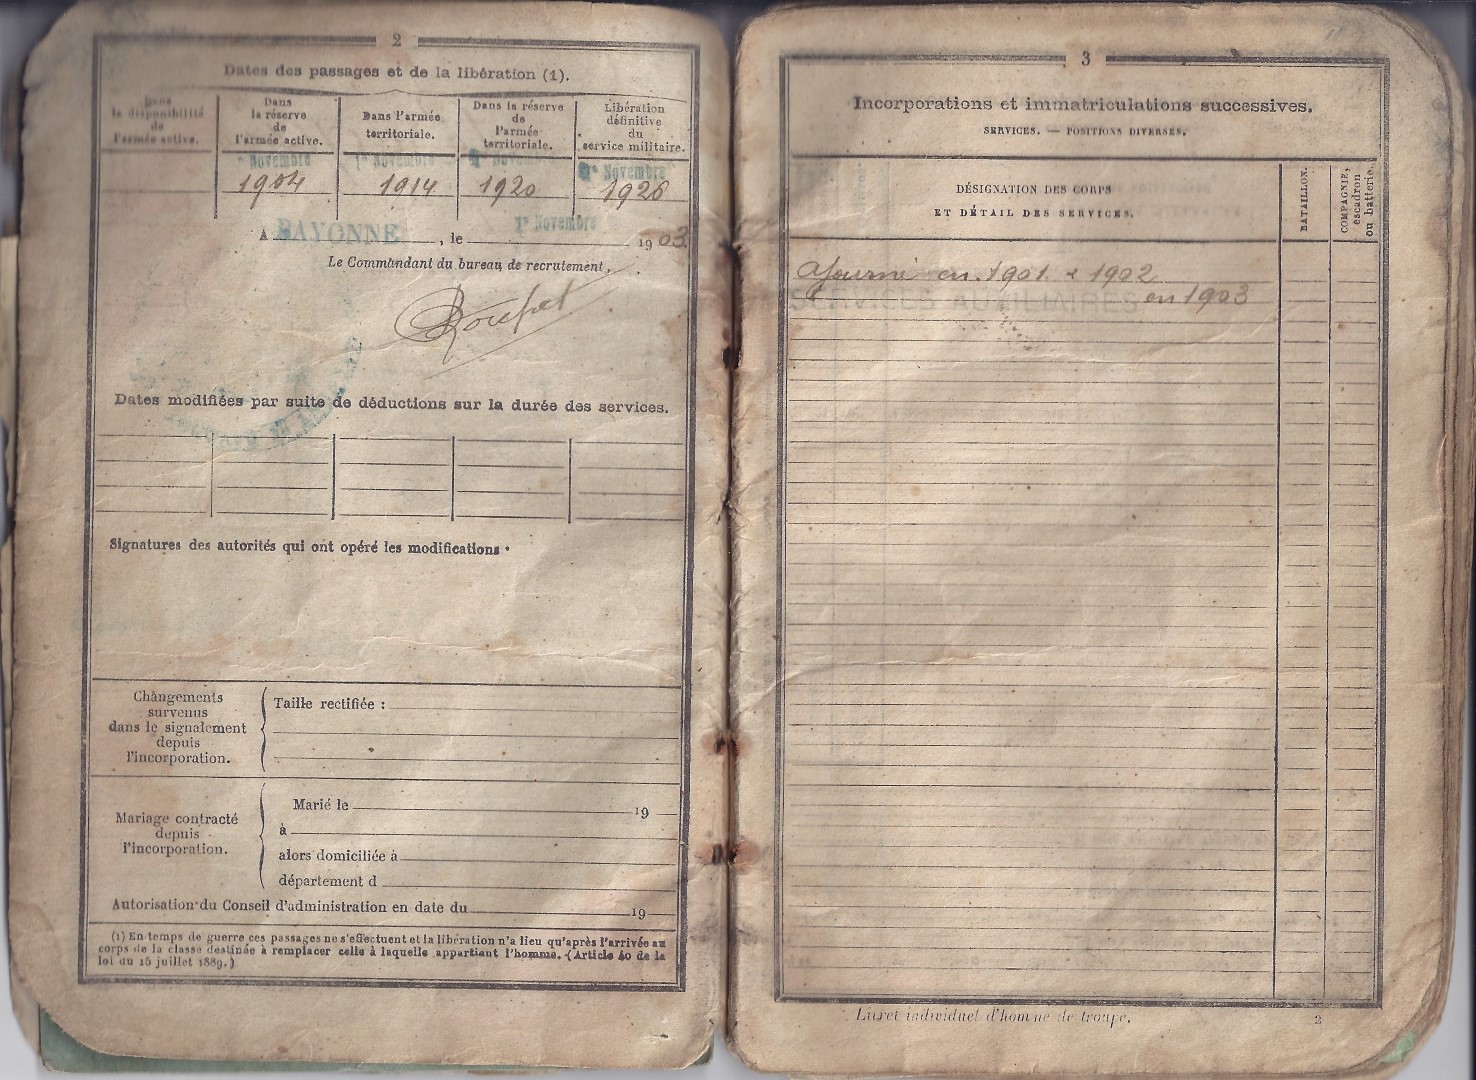 2
Dates des passages et de la libération (1).
Dans
la disponibilité
de
l'armée active.
Dans
la réserve
de
l'armée active.
Dans l'armée
territoriale.
Dans la réserve
de
l'armée
territoriale.
Libération
définitive
du
service militaire.
Novembre
1er Novembre
Novembre
1er Novembre
1904
1914
1920
1926
A BAYONNE, le 1er Novembre 1903.
Le Commandant du bureau de recrutement,
Dates modifiées par suite de déductions sur la durée des services.
Signatures des autorités qui ont opéré les modifications.
Changements
survenus
dans le signalement
depuis
l'incorporation.
Taille rectifiée :
Mariage contracté
depuis
l'incorporation.
Marié le 19
à
alors domiciliée à
département d
Autorisation du Conseil d'administration en date du 19
(1) En temps de guerre ces passages ne s'effectuent et la libération n'a lieu qu'après l'arrivée au
corps de la classe destinée à remplacer celle à laquelle appartient l'homme. (Article 40 de la
loi du 15 juillet 1889.)
3
Incorporations et immatriculations successives.
SERVICES. — POSITIONS DIVERSES.
DÉSIGNATION DES CORPS
ET DÉTAIL DES SERVICES.
BATAILLON.
COMPAGNIE,
escadron
ou batterie.
Ajourné en 1901 & 1902
SERVICES AUXILIAIRES en 1903
Livret individuel d'homme de troupe.
2